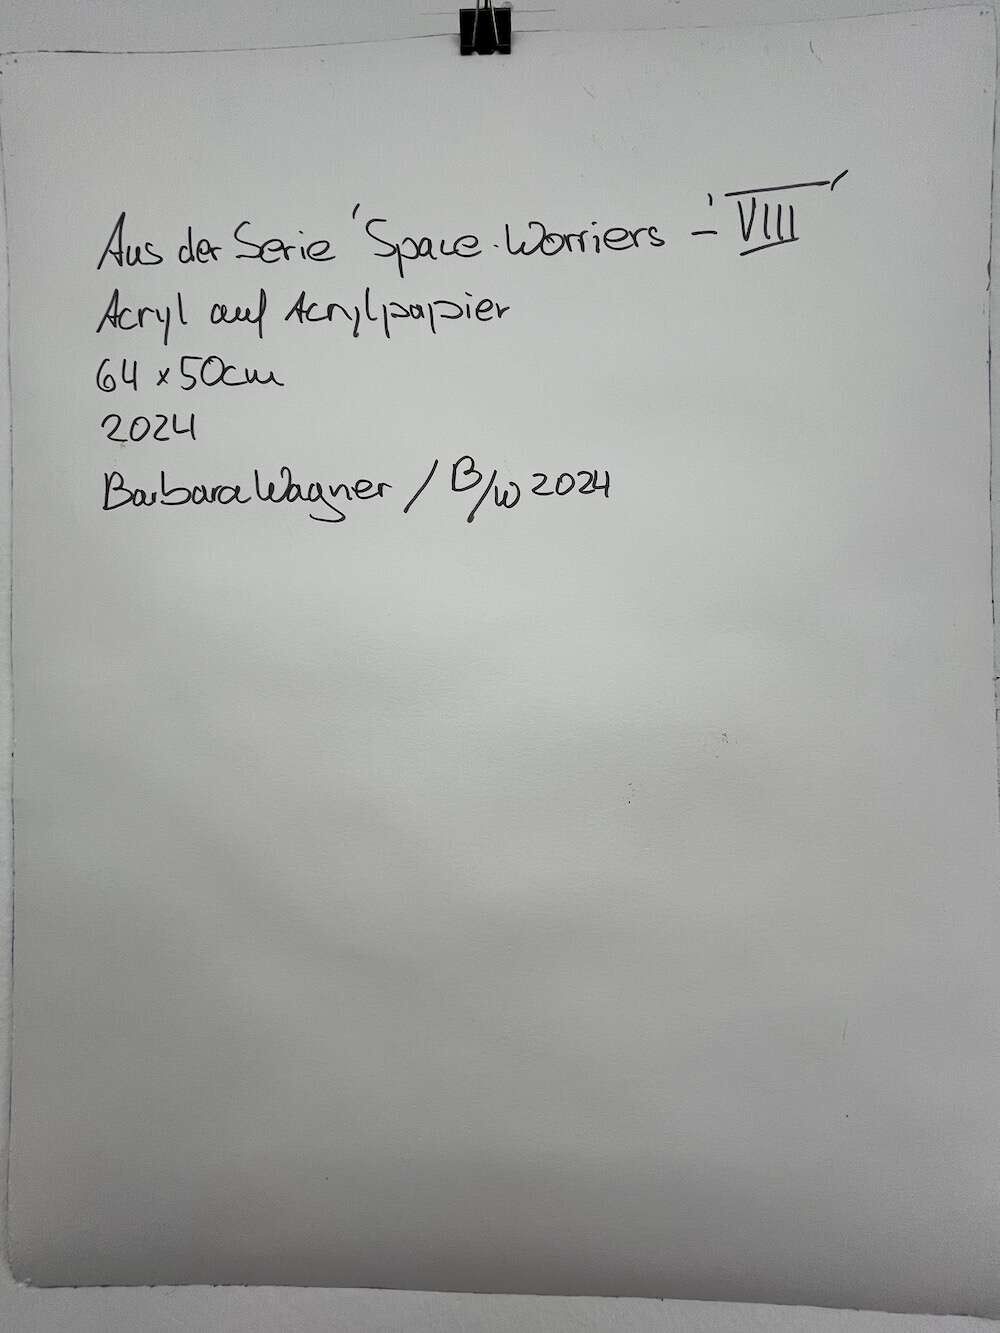 Aus der Serie 'Space-Worriers - 'VIII'
Acryl auf Acrylpapier
64 x 50cm
2024
Barbara Wagner / B/W 2024